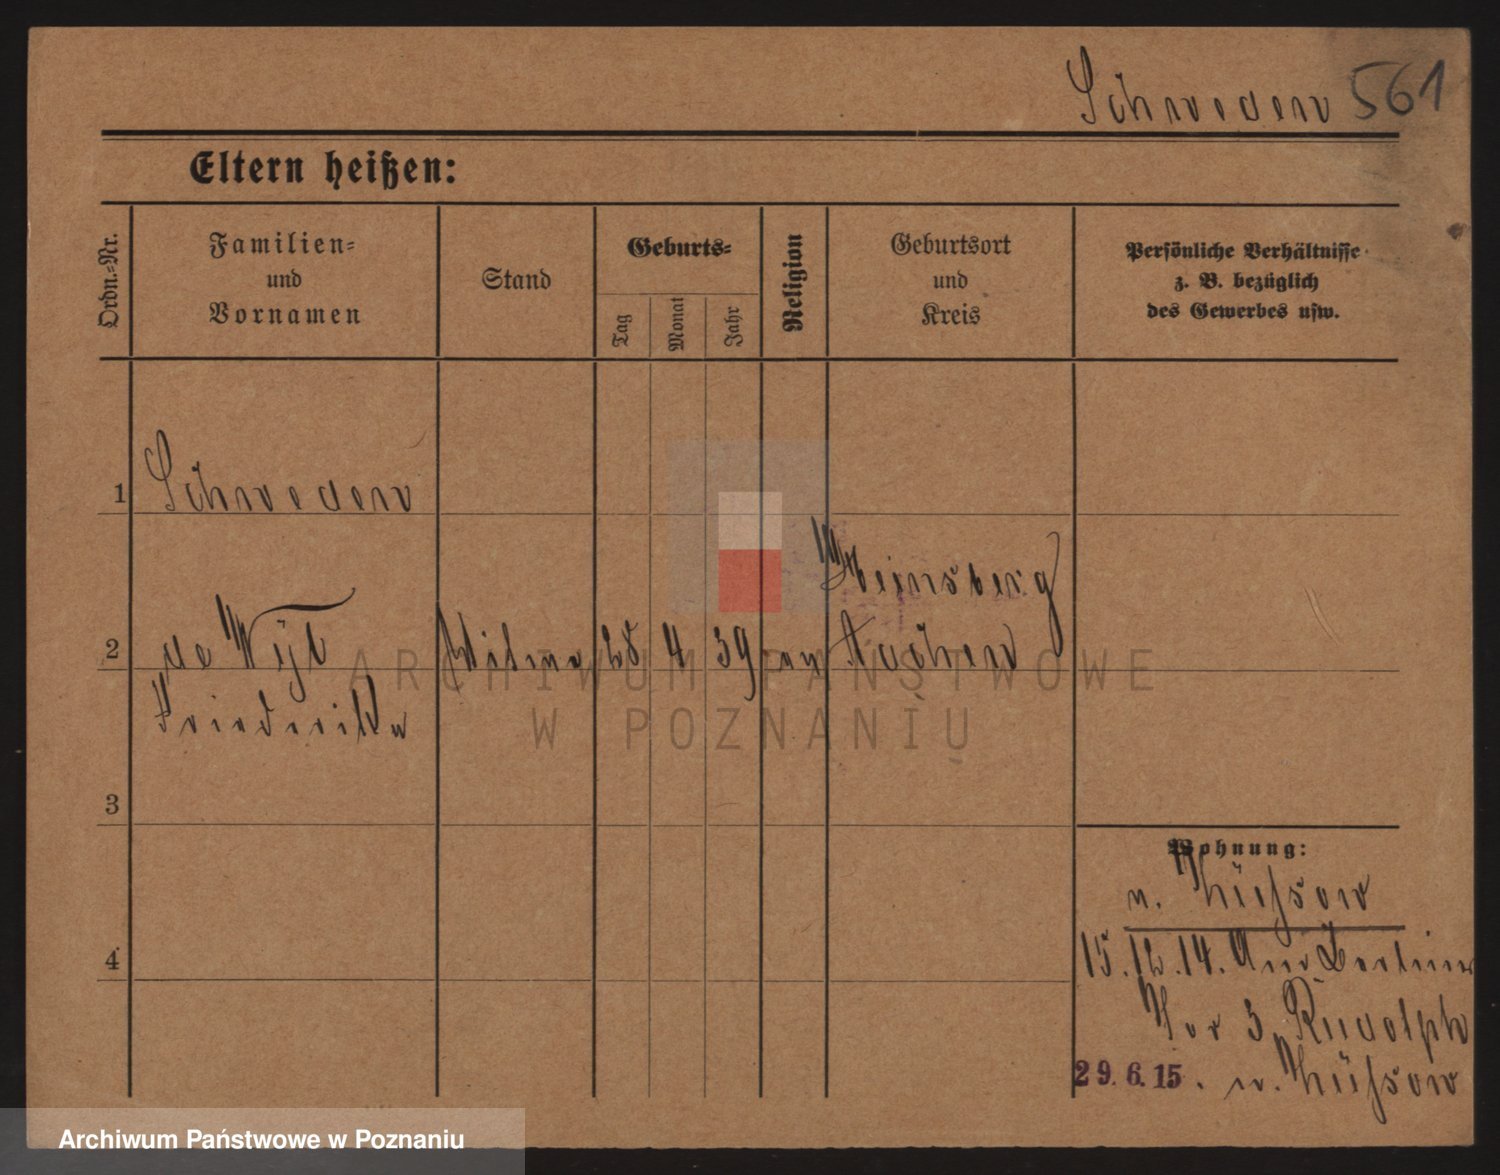 Schweden 561
Eltern heißen:
Ordn.=Nr.
Familien=
und
Vornamen
Stand
Geburts=
Tag
Monat
Jahr
Religion
Geburtsort
und
Kreis
Persönliche Verhältnisse
z. B. bezüglich
des Gewerbes usw.
1 Schweden
Heinsberg
2 de Wyl Witwe 28 4 39 ev Aachen
Friederike
3
4
Wohnung:
n.
15. 12. 14. Am Berliner
Tor 3, Rudolph
29. 6. 15. n.
ARCHIWUM PAŃSTWOWE
W POZNANIU
Archiwum Państwowe w Poznaniu